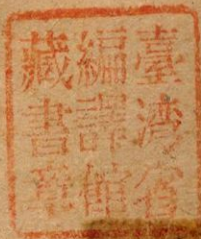 臺湾省
編譯館
藏書章